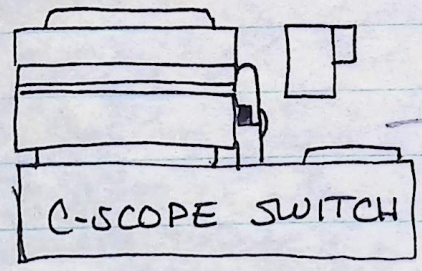 C-SCOPE SWITCH